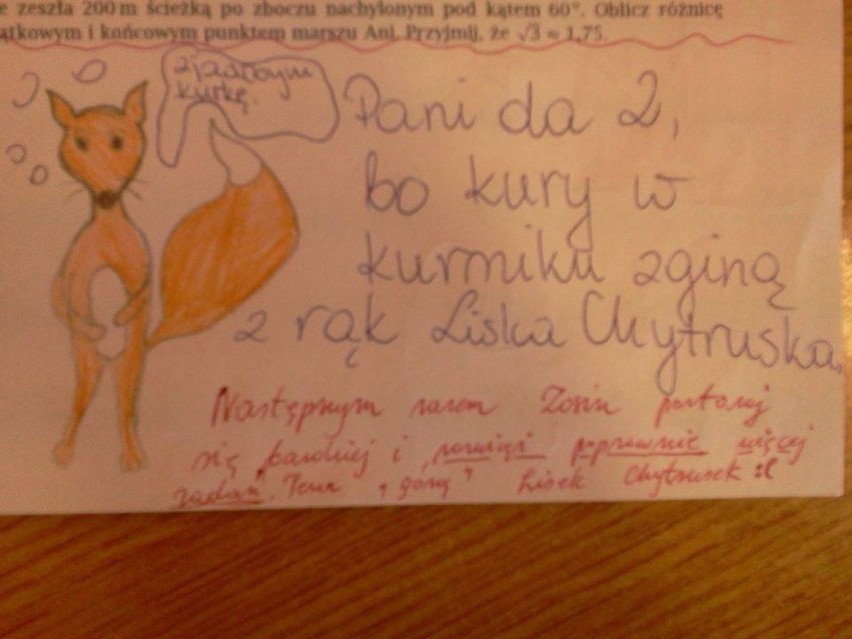 e zeszła 200 m ścieżką po zboczu nachylonym pod kątem 60°. Oblicz różnicę
ątkowym i końcowym punktem marszu Ani. Przyjmij, że √3 ≈ 1,75.
zjadłbym
kurkę.
Pani da 2,
bo kury w
kurniku zginą
z rąk Liska Chytruska.
Następnym razem Zosiu postaraj
się bardziej i "rozwiąż poprawnie więcej
zadań". Teraz "górą" Lisek Chytrusek :(